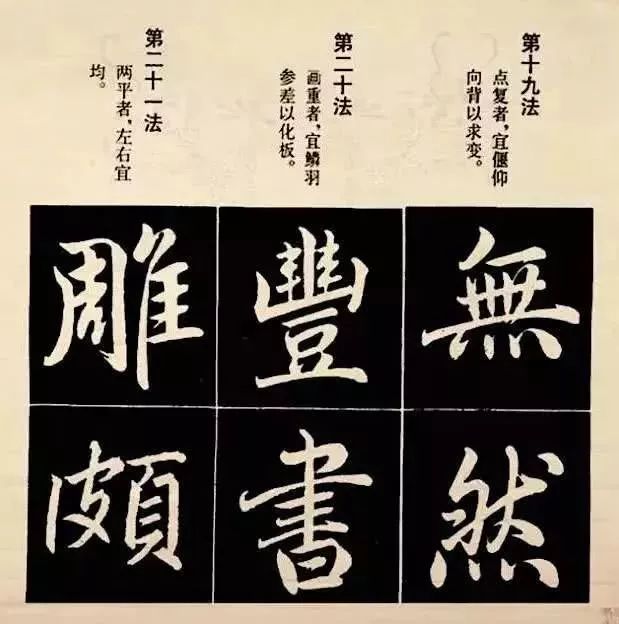 第十九法
点复者，宜偃仰
向背以求变。
第二十法
画重者，宜鳞羽
参差以化板。
第二十一法
两平者，左右宜
均。
無
然
豐
書
雕
頗